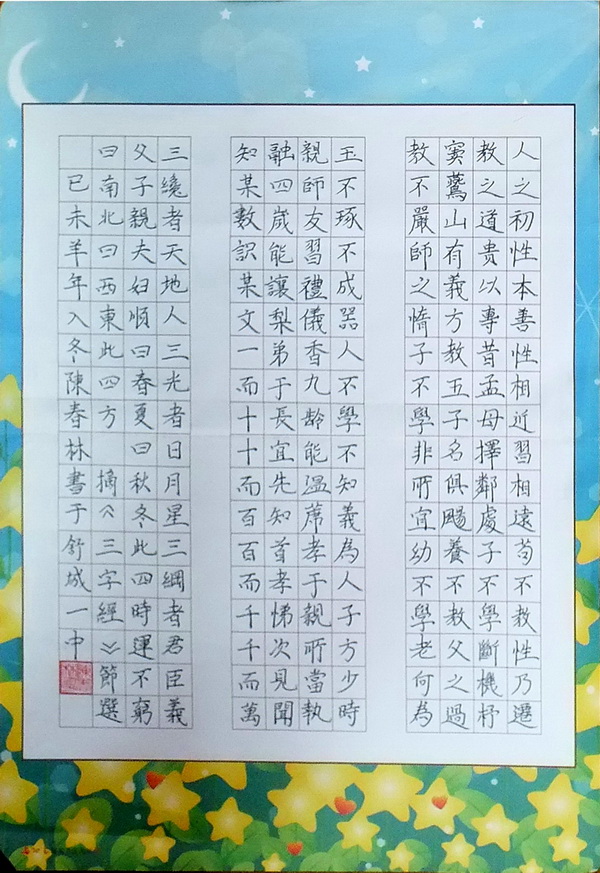 人之初性本善性相近習相遠苟不教性乃遷
教之道貴以專昔孟母擇鄰處子不學斷機杼
竇鷰山有義方教五子名俱颺養不教父之過
教不嚴師之惰子不學非所宜幼不學老何為
玉不琢不成器人不學不知義為人子方少時
親師友習禮儀香九齡能溫蓆孝于親所當執
融四歲能讓梨弟于長宜先知首孝悌次見聞
知某數訳某文一而十十而百百而千千而萬
三纔者天地人三光者日月星三綱者君臣義
父子親夫妇順曰春夏曰秋冬此四時運不窮
曰南北曰西東此四方 摘《三字經》節選
已未羊年入冬陳春林書于舒城一中